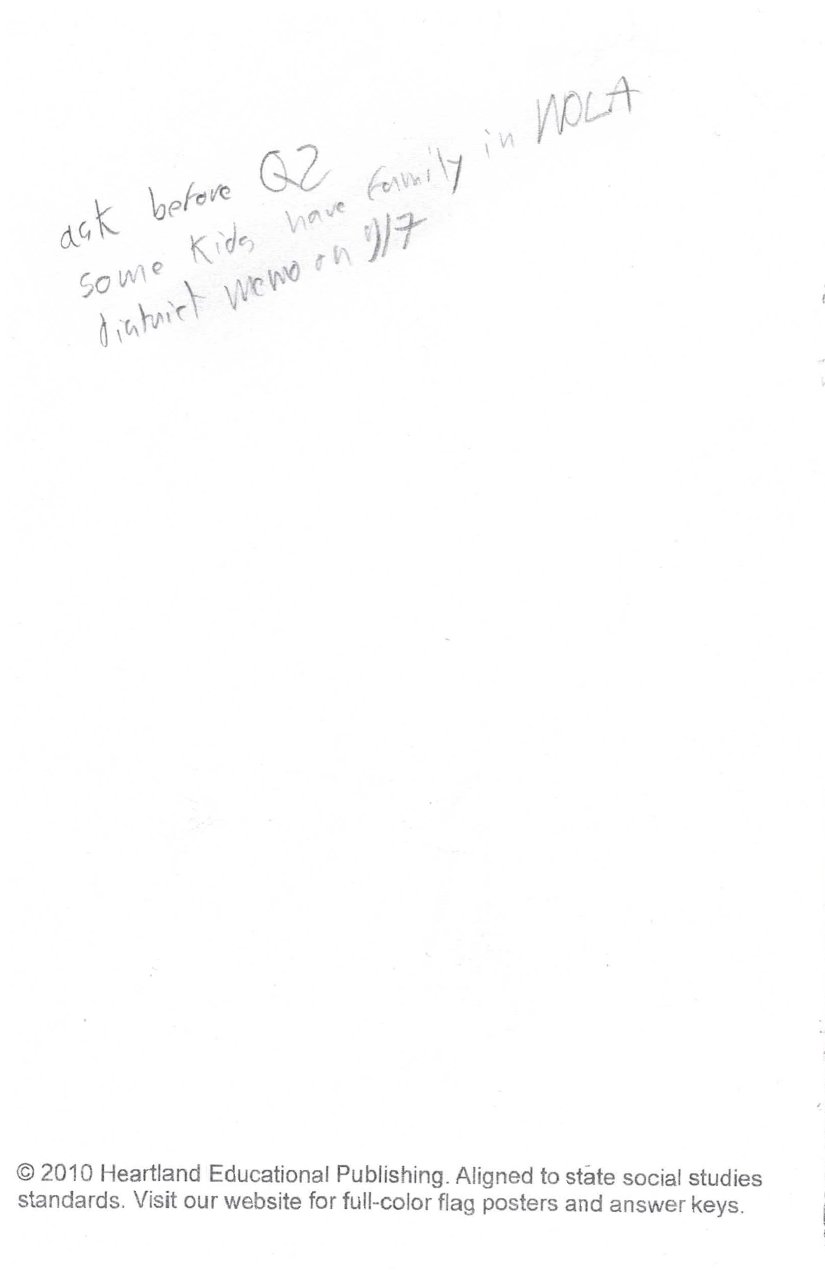 ask before Q2
some kids have family in NOLA
district memo on 9/7
© 2010 Heartland Educational Publishing. Aligned to state social studies
standards. Visit our website for full-color flag posters and answer keys.